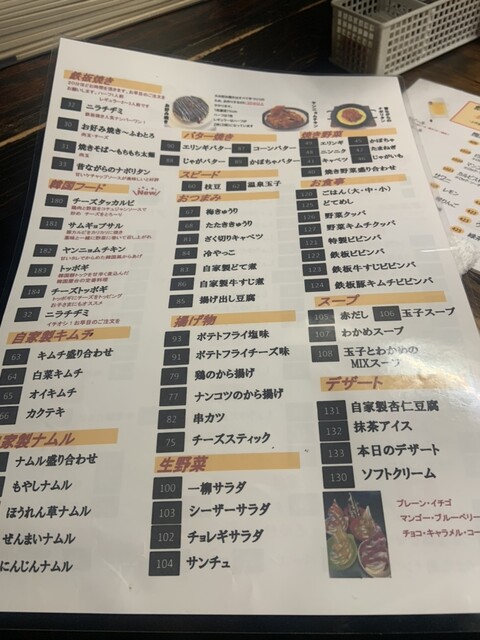 鉄板焼き
32 ニラチヂミ
30 お好み焼き〜ふわとろ
31 焼きそば〜もちもち太麺
33 昔ながらのナポリタン
韓国フード
New!
180 チーズタッカルビ
181 サムギョプサル
182 ヤンニョムチキン
183 トッポギ
184 チーズトッポギ
トッポギにチーズをトッピング
お子さまにもオススメ
32 ニラチヂミ
イチオシ!お早目のご注文を
自家製キムチ
63 キムチ盛り合わせ
64 白菜キムチ
65 オイキムチ
66 カクテキ
家製ナムル
ナムル盛り合わせ
もやしナムル
ほうれん草ナムル
ぜんまいナムル
にんじんナムル
バター焼き
エリンギバター
コーンバター
じゃがバター
かぼちゃバター
スピード
60 枝豆
62 温泉玉子
おつまみ
67 梅きゅうり
68 たたききゅうり
81 ざく切りキャベツ
84 冷やっこ
83 自家製どて煮
86 自家製牛すじ煮
85 揚げ出し豆腐
揚げ物
93 ポテトフライ塩味
91 ポテトフライチーズ味
79 鶏のから揚げ
77 ナンコツのから揚げ
82 串カツ
75 チーズスティック
生野菜
100 一柳サラダ
103 シーザーサラダ
102 チョレギサラダ
104 サンチュ
焼き野菜
エリンギ
かぼちゃ
ニンニク
たまねぎ
キャベツ
じゃがいも
焼き野菜盛り合わせ
お食事
120 ごはん(大・中・小)
125 どてめし
126 野菜クッパ
127 野菜キムチクッパ
121 特製ビビンバ
122 鉄板ビビンバ
123 鉄板牛すじビビンバ
124 鉄板豚キムチビビンバ
スープ
105 赤だし
106 玉子スープ
107 わかめスープ
108 玉子とわかめの
MIXスープ
デザート
131 自家製杏仁豆腐
132 抹茶アイス
133 本日のデザート
130 ソフトクリーム
プレーン・イチゴ
マンゴー・ブルーベリー
チョコ・キャラメル・コー
レモン